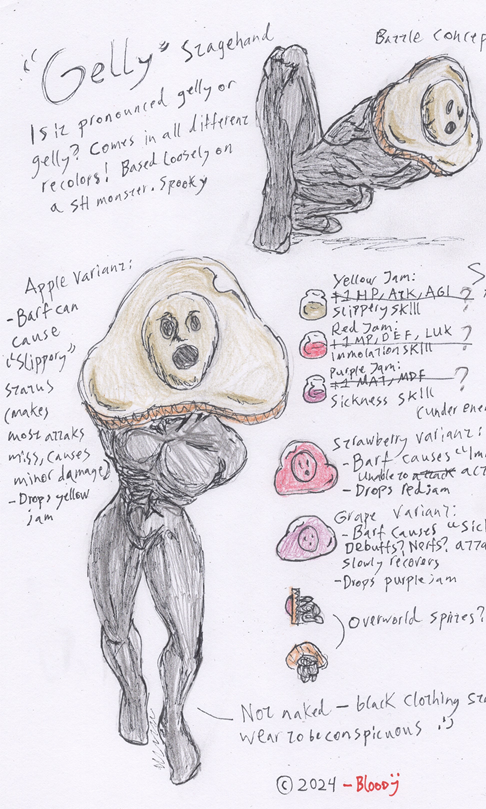 "Gelly" Stagehand
Is it pronounced gelly or
gelly? Comes in all different
recolors! Based loosely on
a SH monster. Spooky
Battle Concep
Apple Variant:
- Barf can
cause
"Slippery"
status
(makes
most attaks
miss, causes
minor damage)
- Drops yellow
jam
Yellow Jam:
+1 HP, Atk, AGI ?
Slippery skill
Red Jam:
+1 MP, DEF, LUK ?
Immolation skill
Purple Jam:
+1 MAT, MDF ?
Sickness skill
(under ene
Strawberry variant:
- Barf causes "Im
Unable to attack act
- Drops red jam
Grape Variant:
- Barf causes "Sic
Debuffs? Nerfs? atta
slowly recovers
- Drops purple jam
Overworld Sprites?
Not naked - black clothing sta
wear to be conspicuous :)
© 2024 - Bloodij